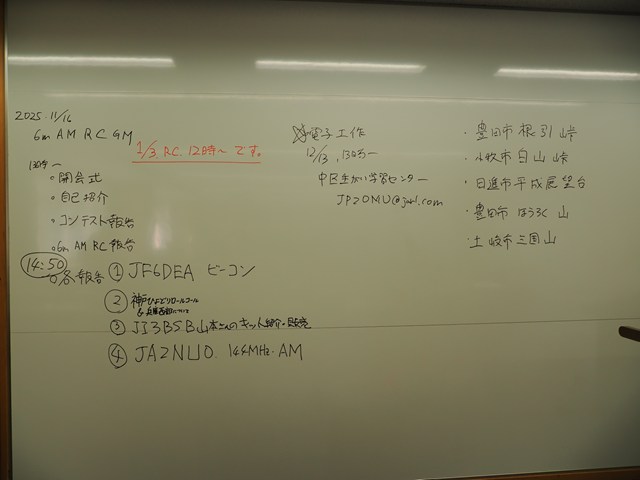 2025.11/16
6m AM RC GM
1/3 RC 12時～です。
13時～
・開会式
・自己紹介
・コンテスト報告
・6m AM RC 報告
14:50
・各報告
① JF6DEA ビーコン
② 神戸ひよどりロールコール
③ JI3BSB山本さんのキット紹介・販売
④ JA2NUO. 144MHz. AM
電子工作
12/13, 13時～
中区生がい学習センター
JP2OMU@jarl.com
・豊田市 根引峠
・小牧市 白山峠
・日進市平成展望台
・豊田市 ほうろく山
・土岐市三国山